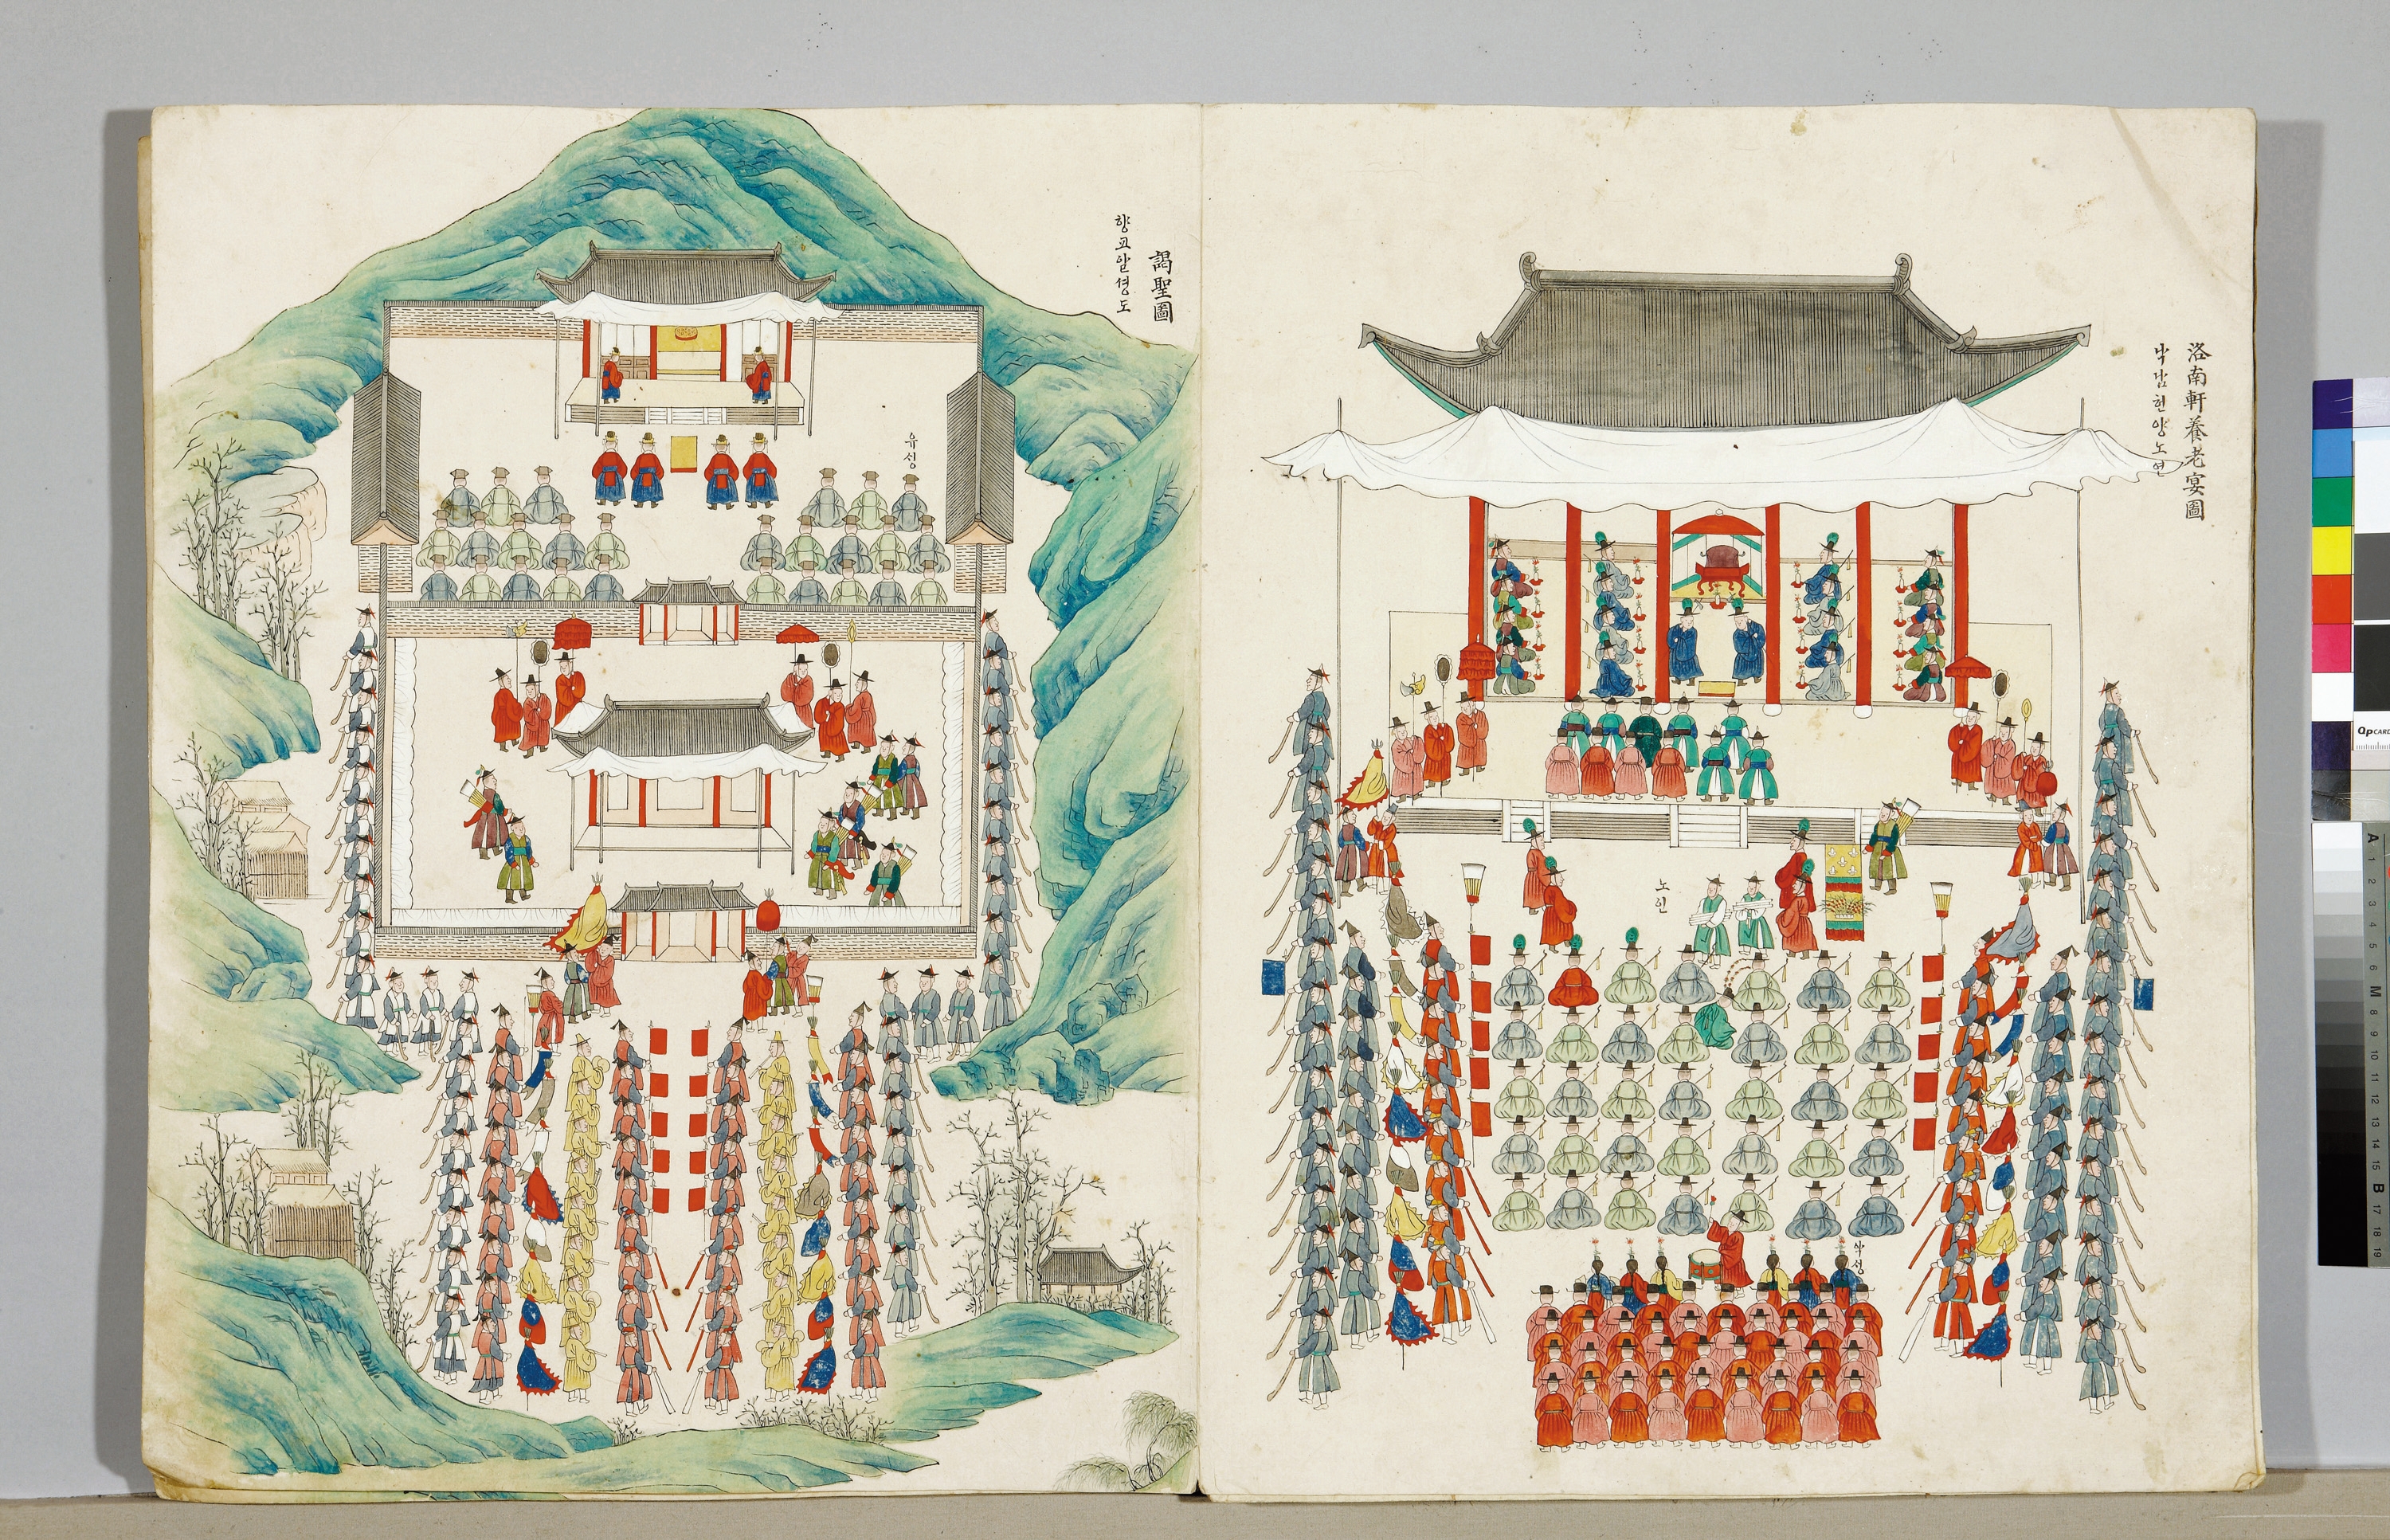 洛南軒養老宴圖
낙남헌양노연
노인
악싱
謁聖圖
향교알셩도
유싱
QpCARD
A 1 2 3 4 5 6 M 8 9 10 11 12 13 14 15 B 17 18 19